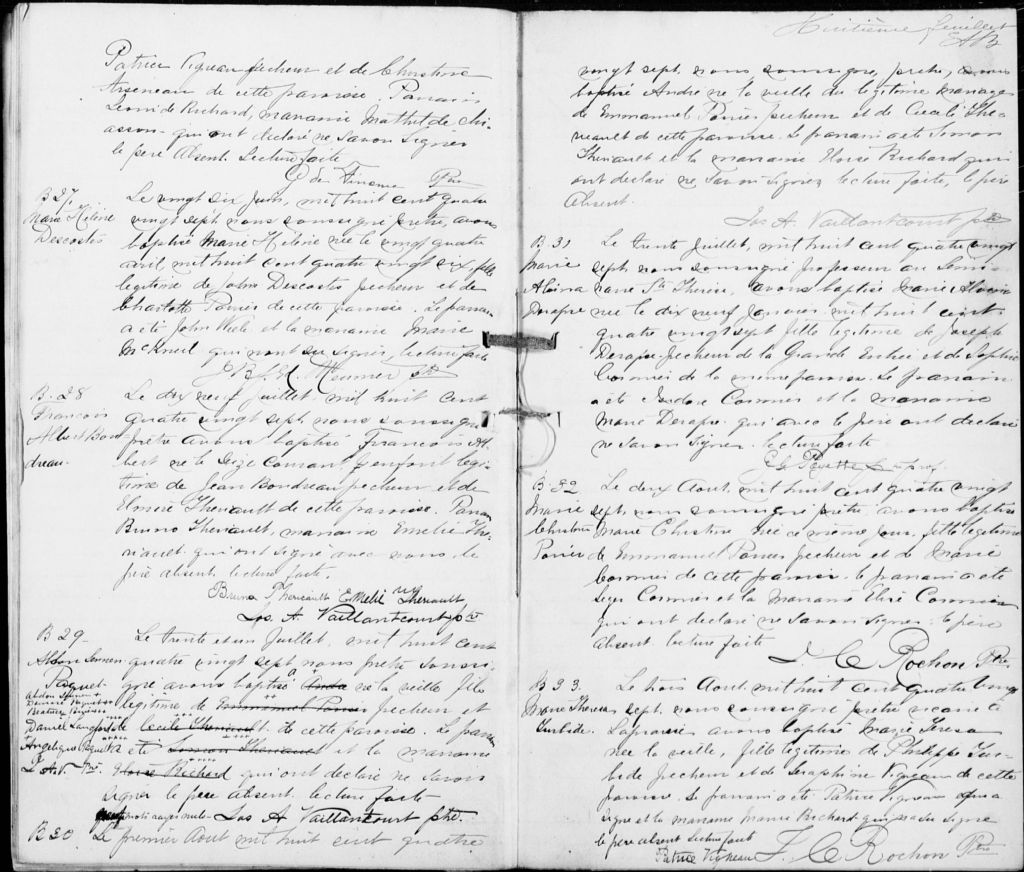 Patrice Vigneau pecheur et de Christine
Arseneau de cette paroisse. Parrain
Leonide Richard, marraine Mathilde Chi-
asson qui ont declaré ne savoir signer
le pere absent. Lecture faite
Ptre
B 27.
Marie Helène
Descostes
Le vingt six Juin, mil huit cent quatre
vingt sept nous soussigné prêtre, avons
baptisé Marie Helène née le vingt quatre
avril mil huit cent quatre vingt six, fille
legitime de John Descostes pecheur et de
Charlotte Poirier de cette paroisse. Le parrain
a été John et la marraine Marie
McKneil qui n'ont su signer, lecture faite
B. 28
Francois
Albert Bou
dreau.
Le dix neuf Juillet mil huit cent
quatre vingt sept nous soussigné
prêtre avons baptisé Francois Al-
bert né le seize courant, enfant legi-
time de Jean Boudreau pecheur et de
Elmire Theriault de cette paroisse. Parrain
Bruno Theriault, marraine Emelie The-
riault qui ont signé avec nous le
père absent, lecture faite.
Bruno Theriault Emelie Theriault
Jos. A. Vaillantcourt ptre
B 29
Paquet
Daniel Langford
Angelique Paquet
J. A. V. Ptre
Le trente et un Juillet mil huit cent
quatre vingt sept nous prêtre soussi-
gné avons baptisé André né la veille fils
legitime de Emmanuel Poirier pecheur et
de Cecile Theriault de cette paroisse. Le parrain
a été Simon Theriault et la marraine
Eloise Richard qui ont declaré ne savoir
signer le père absent. lecture faite
Jos A Vaillantcourt ptre.
B 30.
Le premier Aout mil huit cent quatre
Huitième feuillet
vingt sept nous, soussigné, prêtre, avons
baptisé André né la veille du legitime mariage
de Emmanuel Poirier pecheur et de Cecile The-
reault de cette paroisse. Le parrain a été Simon
Theriault et la marraine Eloise Richard qui
ont declaré ne savoir signer lecture faite, le père
absent.
Jos A. Vaillantcourt ptre
B. 31
Marie
Aloina
Derapre
Le trente Juillet, mil huit cent quatre vingt
sept nous soussigné professeur au Semi-
naire Ste Therèse, avons baptisé Marie Aloina
née le dix neuf Janvier mil huit cent
quatre vingt sept fille legitime de Joseph
Derapre pecheur de la Grande Entrée et de Sophie
Cormier de la même paroisse. Le parrain
a été Isidore Cormier et la marraine
Marie Derapre qui avec le père ont declaré
ne savoir signer. lecture faite
B. 32
Marie
Christine
Poirier
Le deux Aout mil huit cent quatre vingt
sept, nous soussigné prêtre avons baptisé
Marie Christine née ce même jour, fille legitime
de Emmanuel Poirier pecheur et de Marie
Cormier de cette paroisse. le parrain a été
Leger Cormier et la marraine Elise Cormier
qui ont declaré ne savoir signer. le père
absent. lecture faite
J C Rochon Ptre
B 33
Marie Theresa
Turbide.
Le trois Aout mil huit cent quatre vingt
sept, nous soussigné prêtre vicaire à
Laprairie avons baptisé Marie Teresa
née la veille, fille legitime de Philippe Tur-
bide pecheur et de Seraphine Vigneau de cette
paroisse. Le parrain a été Patrice Vigneau qui a
signé et la marraine Marie Richard qui n'a su signer
le père absent lecture faite
Patrice Vigneau J. C Rochon Ptre